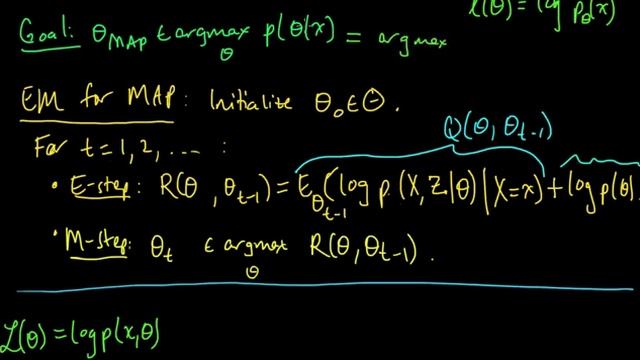 ℓ(θ) = log p_θ(x)
Goal: θ_MAP ∈ argmax_θ p(θ|x) = argmax
EM for MAP: Initialize θ_0 ∈ Θ.
Q(θ, θ_{t-1})
For t = 1, 2, .... :
• E-step: R(θ, θ_{t-1}) = E_{θ_{t-1}}(log p(X, Z|θ) | X=x) + log p(θ)
• M-step: θ_t ∈ argmax_θ R(θ, θ_{t-1}).
ℒ(θ) = log p(x, θ)